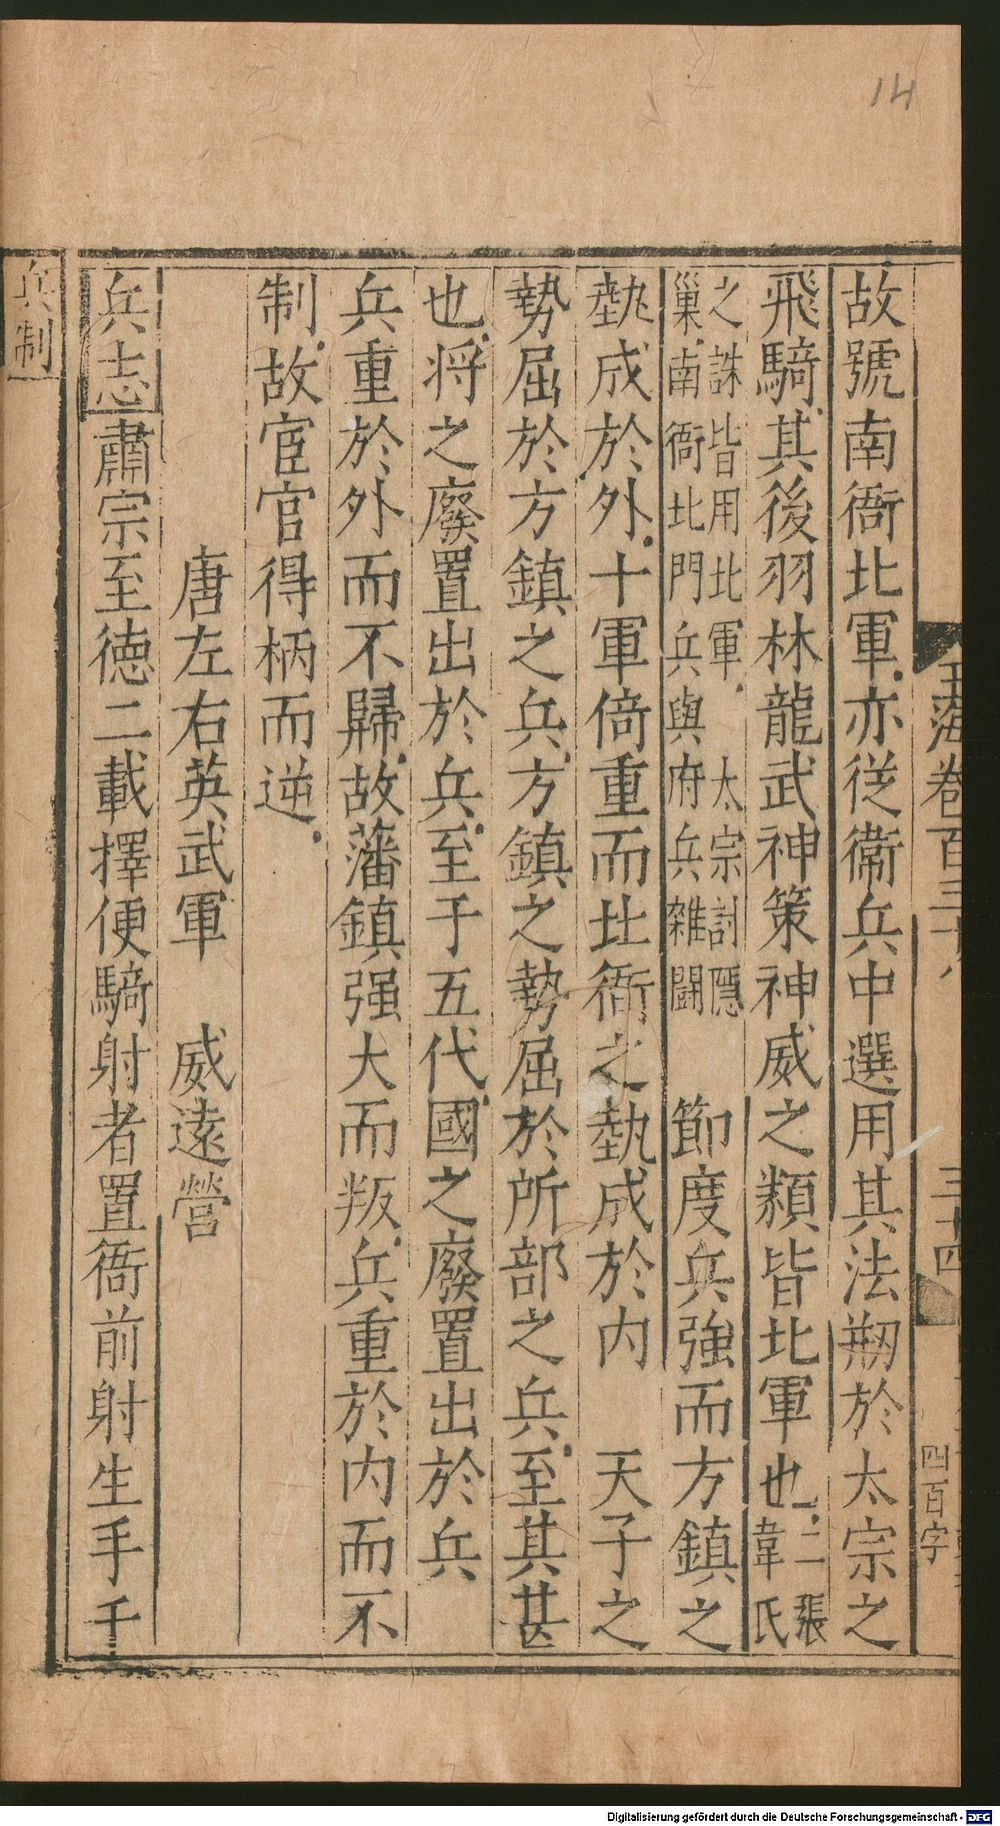 14
玉海卷百三十八
三十四
四百字
故號南衙北軍亦從衛兵中選用其法刱於太宗之
飛騎其後羽林龍武神策神威之類皆北軍也二張韋氏
之誅皆用北軍太宗討隱巢南衙北門兵與府兵雜鬬節度兵強而方鎮之
埶成於外十軍倍重而北衙之埶成於内天子之
勢屈於方鎮之兵方鎮之勢屈於所部之兵至其甚
也将之廢置出於兵至于五代國之廢置出於兵
兵重於外而不歸故藩鎮强大而叛兵重於内而不
制故宦官得柄而逆
唐左右英武軍 威遠營
兵志肅宗至徳二載擇便騎射者置衙前射生手千
兵制
Digitalisierung gefördert durch die Deutsche Forschungsgemeinschaft - DFG